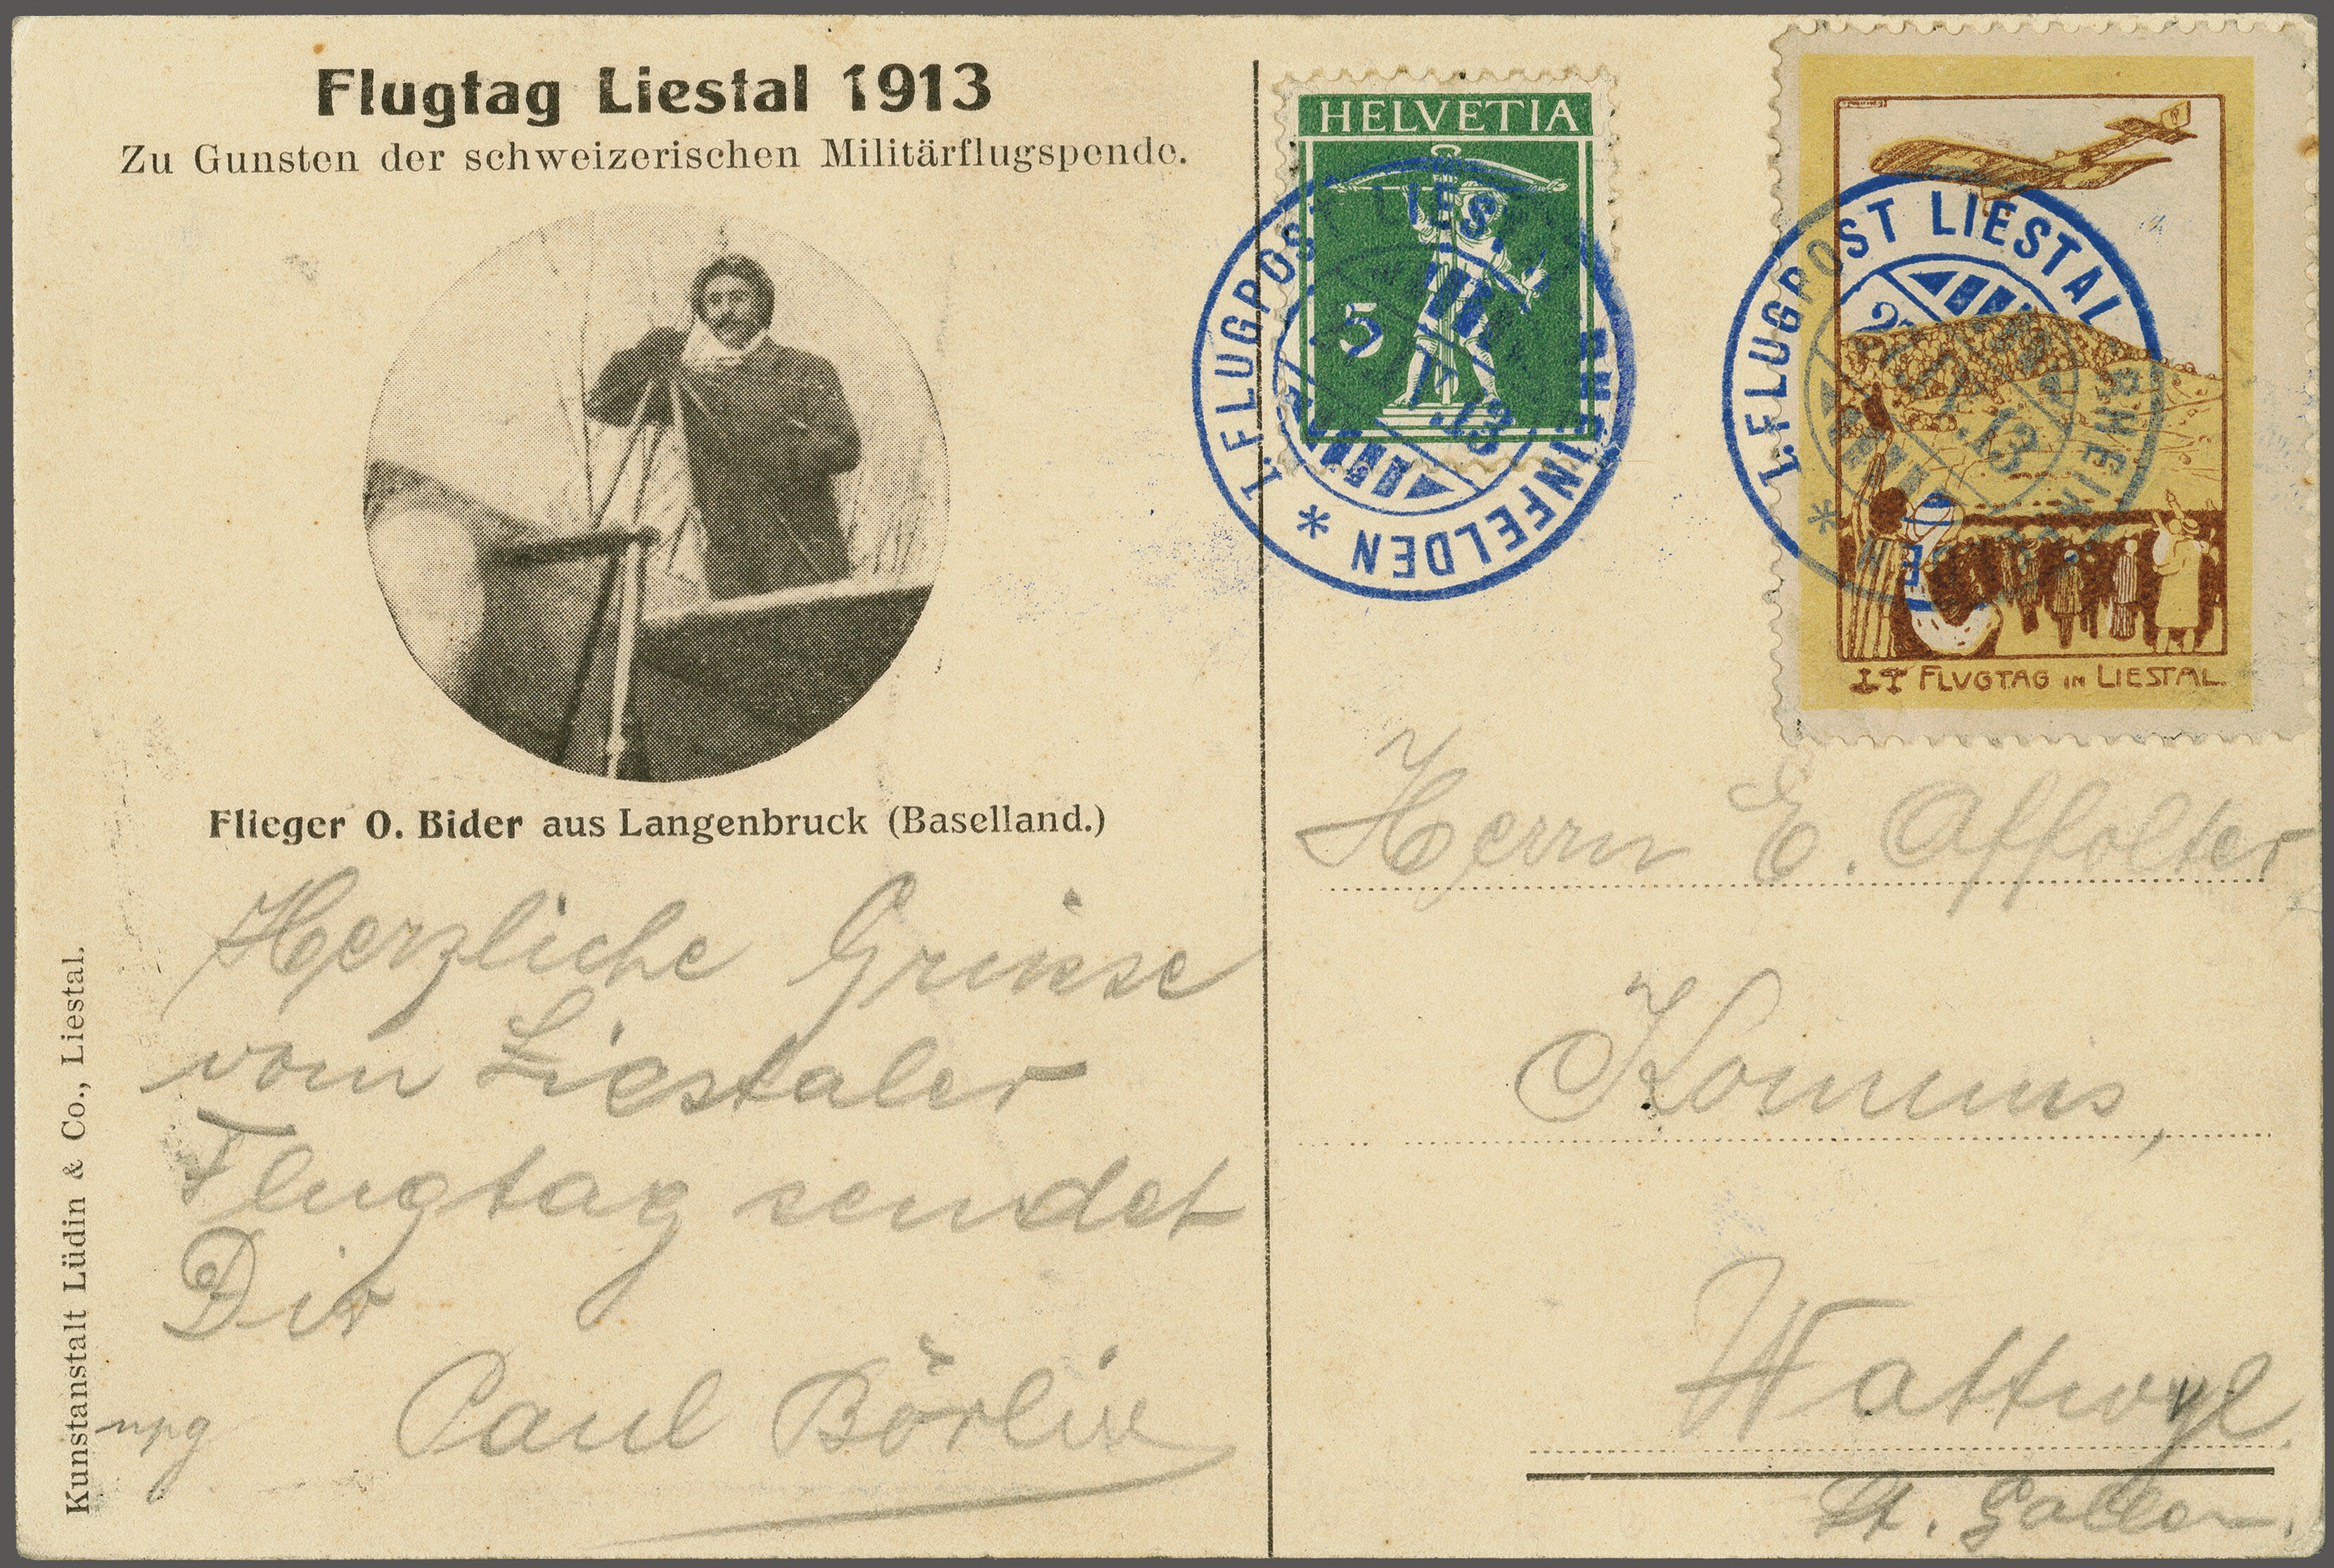 Flugtag Liestal 1913
Zu Gunsten der schweizerischen Militärflugspende.
Flieger O. Bider aus Langenbruck (Baselland.)
Herzliche Grüsse
vom Liestaler
Flugtag sendet
Dir
Paul Börlin
Kunstanstalt Lüdin & Co., Liestal.
HELVETIA
5
I. FLUGPOST LIESTAL RHEINFELDEN *
.13
I. FLUGPOST LIESTAL RHEIN
.13
*
I. FLVGTAG IN LIESTAL.
Herrn E. Affolter
Kommis,
Wattwyl.
St. Gallen.